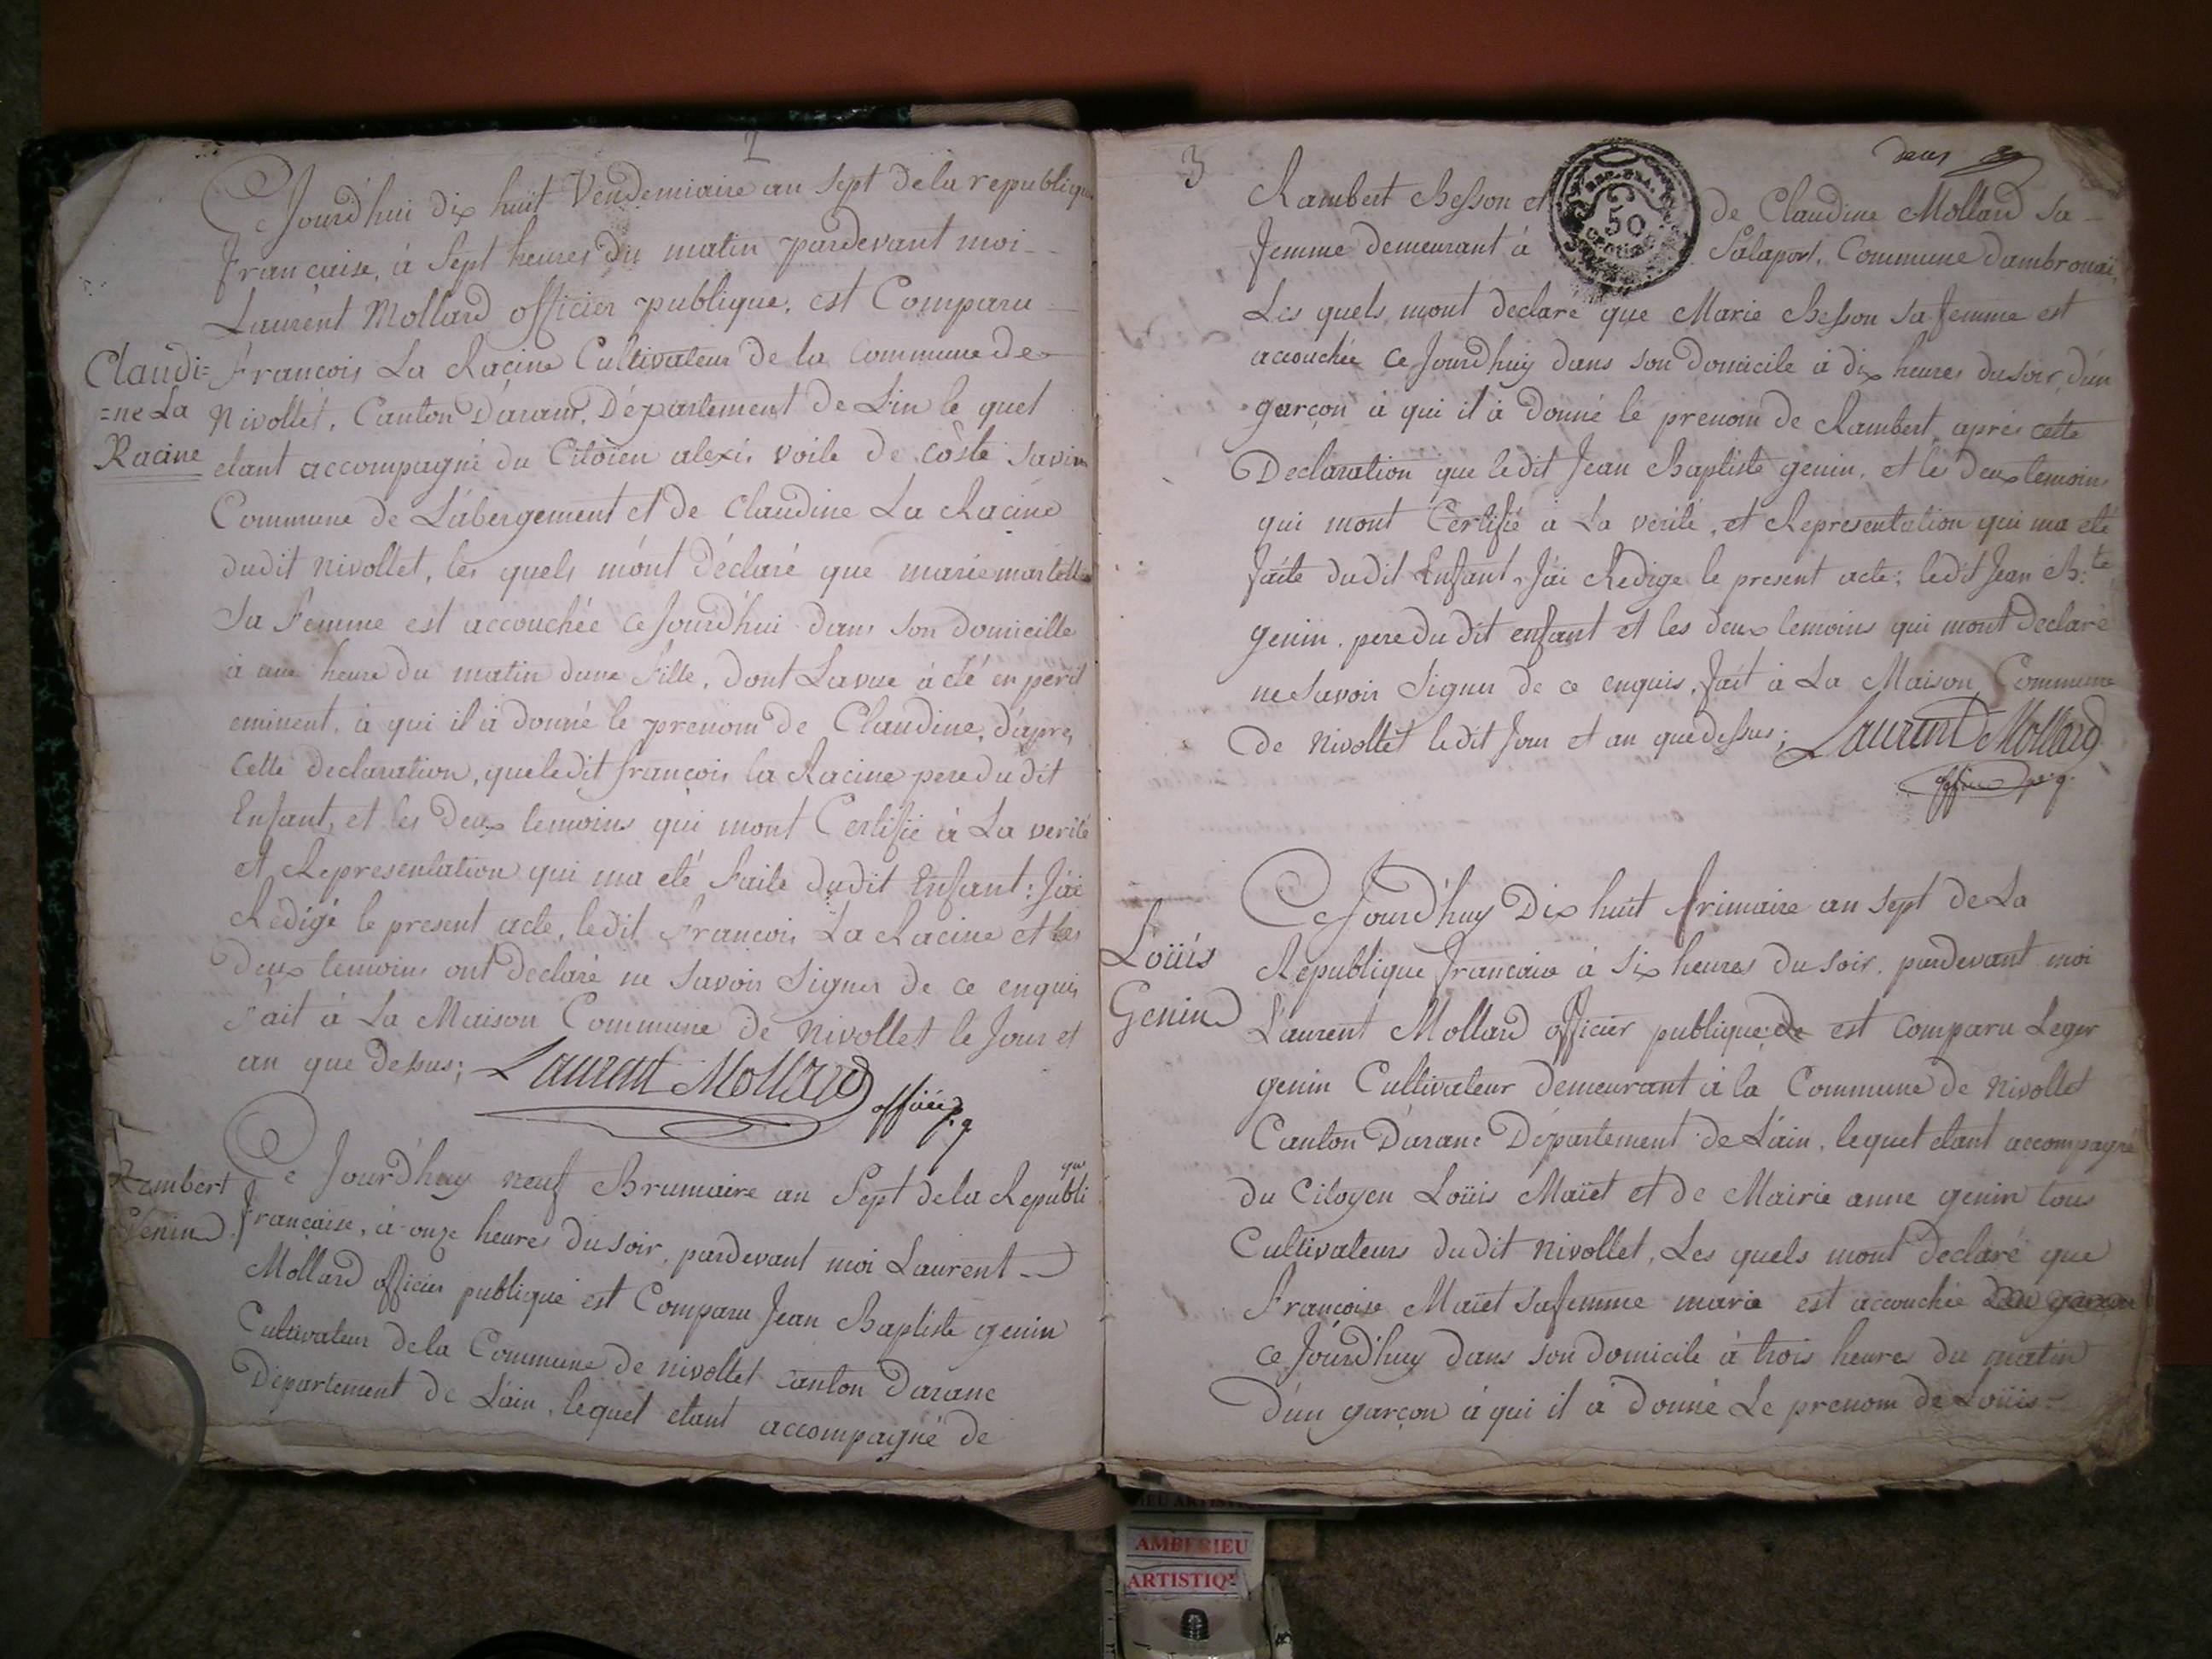 2
Ce Jourd'hui dix huit Vendemiaire an Sept de la republique
francaise, à Sept heures du matin pardevant moi
Laurent Mollard officier publique, est Comparu
Claudi= François La Racine Cultivateur de la Commune de
=ne La Nivollet, Canton Daranc, Département de L'in le quel
Racine etant accompagné du Citoïen alexis voile de Coste Savin
Commune de L'abergement et de Claudine La Racine
dudit nivollet, les quels m'ont déclaré que marie
Sa femme est accouchée ce Jourd'hui dans son domicille
à une heure du matin dune fille, dont La vue à été en peril
eminent, à qui il à donné le prenom de Claudine, d'apres
Cette declaration, que ledit françois la Racine pere du dit
Enfant, et les deux temoins qui mont Certifié à La verité
et Representation qui ma eté faite dudit Enfant : J'ai
Redigé le present acte, ledit François La Racine et les
deux temoins ont declaré ne Savoir Signer de ce enquis
fait à La Maison Commune de Nivollet le Jour et
an que dessus; Laurent Mollard officier p.q
Rambert Ce Jourd'huy neuf Brumaire an Sept de la Republique
Genin française, à onze heures du soir, pardevant moi Laurent
Mollard officier publique est Comparu Jean Baptiste genin
Cultivateur de la Commune de nivollet canton Daranc
Departement de L'ain, lequel etant accompagné de
3
deux
Rambert Besson et de Claudine Mollard sa
REP. FRA.
50
femme demeurant à Salaport, Commune dambronaï,
Les quels mont declaré que Marie Besson sa femme est
accouchée ce Jourd'huy dans son domicile à dix heures du soir, d'un
garçon à qui il à donné le prenom de Rambert, après cette
Declaration que ledit Jean Baptiste genin, et les deux temoins
qui mont Certifié à La verité, et Representation qui ma eté
faite dudit Enfant, J'ai Redigé le present acte; ledit Jean B:te
genin, pere du dit enfant et les deux temoins qui mont declaré
ne Savoir Signer de ce enquis, fait à La Maison Commune
de Nivollet ledit Jour et an que dessus; Laurent Mollard
officier p.q.
Ce Jourd'huy Dix huit frimaire an Sept de La
Loüis Republique francaise à Six heures du Soir, pardevant moi
Genin Laurent Mollard officier publique de est comparu Leger
genin Cultivateur demeurant à la Commune de Nivollet
Canton Daranc Département de L'ain, lequel etant accompagné
du Citoyen Loüis Maïet et de Mairie anne genin tous
Cultivateurs dudit Nivollet, Les quels mont declaré que
Françoise Maïet sa femme marie est accouchée
ce Jourd'huy dans son domicile à trois heures du matin
d'un garçon à qui il à donné Le prenom de Loüis
AMBERIEU
ARTISTIQ